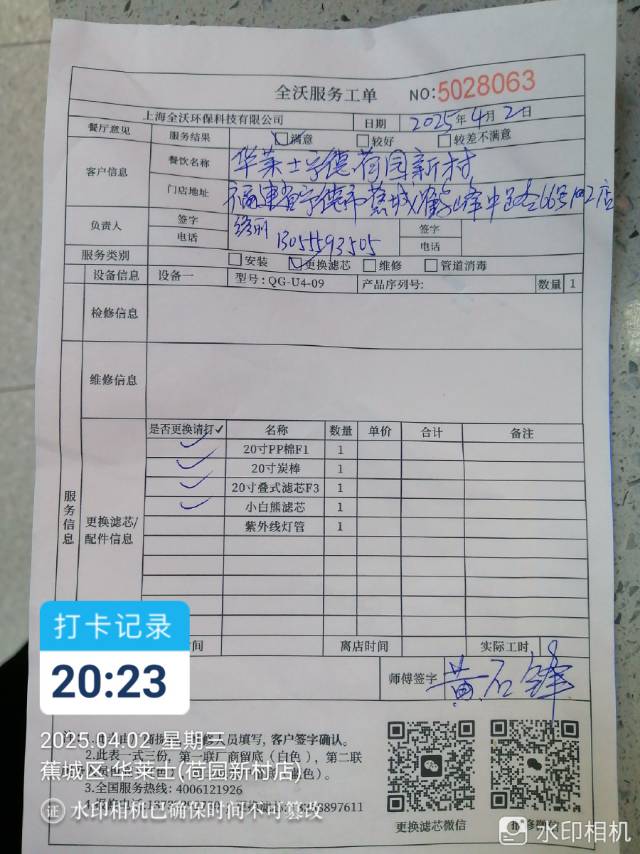 全沃服务工单 NO:5028063
上海全沃环保科技有限公司 日期 2025年4月2日
餐厅意见 服务结果 满意 较好 较差不满意
客户信息 餐饮名称 华莱士宁德荷园新村
门店地址 福建省宁德市蕉城 峰中路66号 店
负责人 签字 签字
电话 13055593505 电话
服务类别 安装 更换滤芯 维修 管道消毒
设备信息 设备一 型号: QG-U4-09 产品序列号: 数量 1
检修信息
维修信息
服务信息
更换滤芯/配件信息
是否更换请打✓ 名称 数量 单价 合计 备注
✓ 20寸PP棉F1 1
✓ 20寸炭棒 1
✓ 20寸叠式滤芯F3 1
✓ 小白熊滤芯 1
紫外线灯管 1
时间 离店时间 实际工时
师傅签字 黄石锋
打卡记录
20:23
人员填写,客户签字确认。
2.此表一式三份,第一联厂商留底(白色)、第二联
3.全国服务热线: 4006121926
更换滤芯微信
2025.04.02 星期三
蕉城区·华莱士(荷园新村店)
证 水印相机已确保时间不可篡改
水印相机